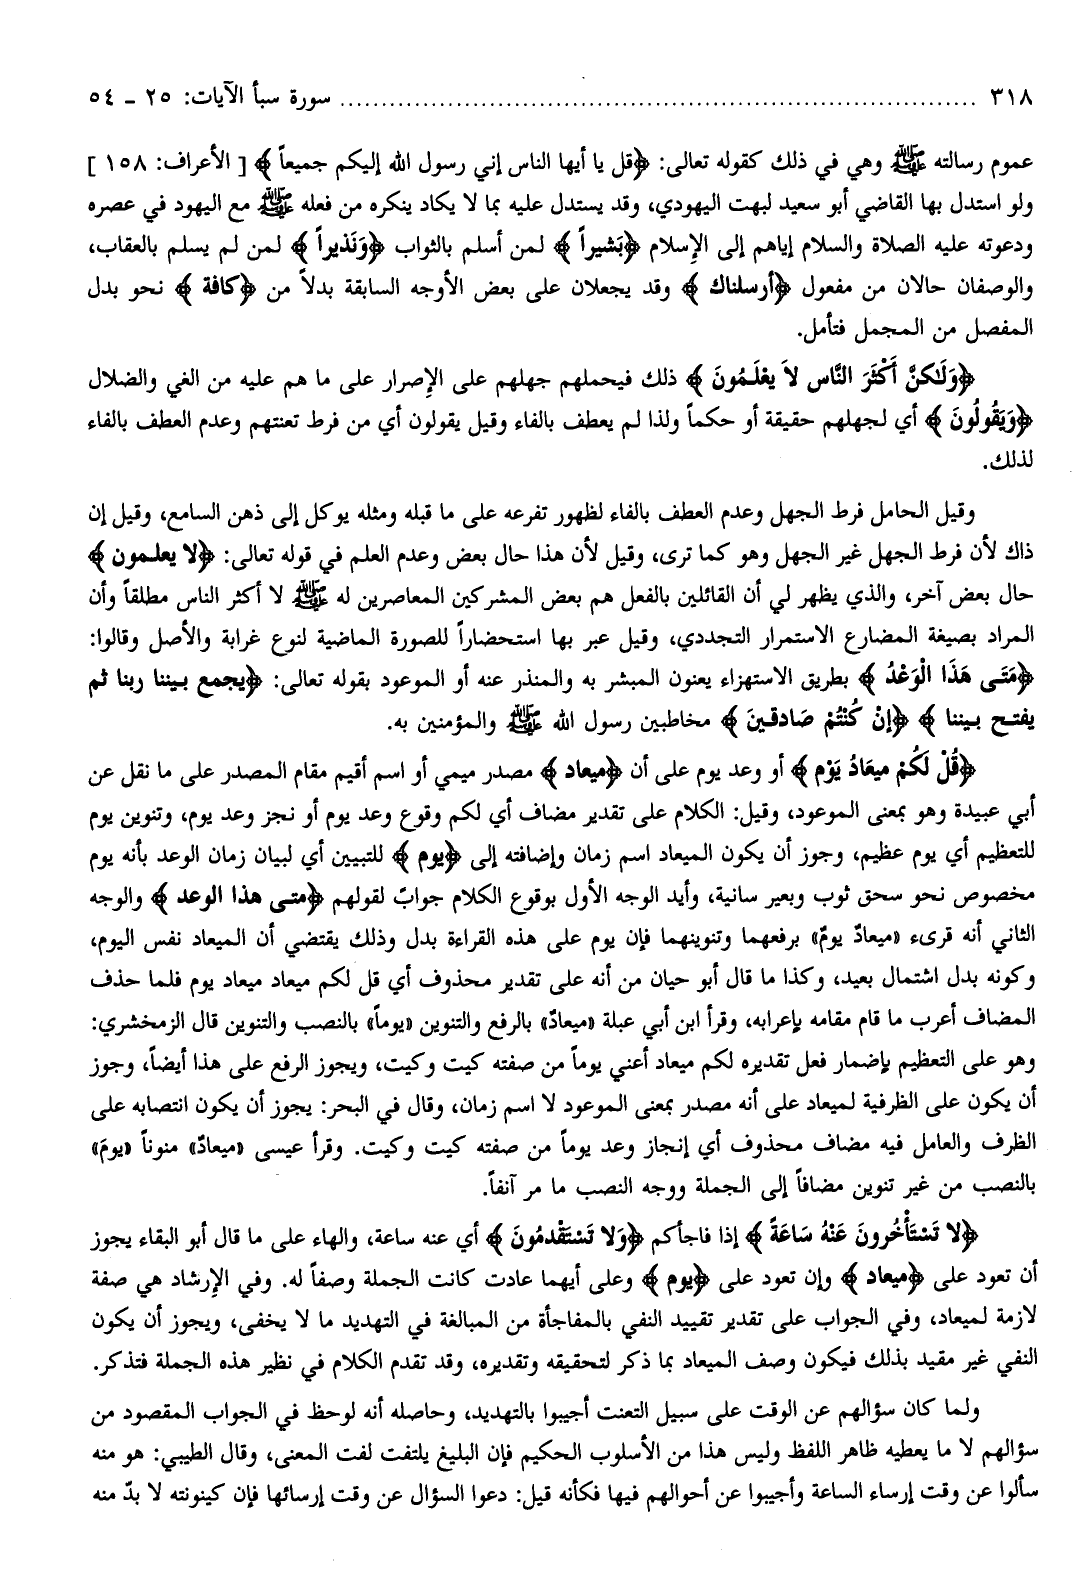 ٣١٨ ........ سورة سبأ الآيات: ٢٥ ـ ٥٤
عموم رسالته ﷺ وهي في ذلك كقوله تعالى: ﴿قل يا أيها الناس إني رسول الله إليكم جميعاً﴾ [الأعراف: ١٥٨]
ولو استدل بها القاضي أبو سعيد لبهت اليهودي، وقد يستدل عليه بما لا يكاد ينكره من فعله ﷺ مع اليهود في عصره
ودعوته عليه الصلاة والسلام إياهم إلى الإسلام ﴿بَشيراً﴾ لمن أسلم بالثواب ﴿وَنَذيراً﴾ لمن لم يسلم بالعقاب،
والوصفان حالان من مفعول ﴿أرسلناك﴾ وقد يجعلان على بعض الأوجه السابقة بدلاً من ﴿كافة﴾ نحو بدل
المفصل من المجمل فتأمل.
﴿وَلَكنَّ أَكْثَرَ النَّاس لاَ يعْلَمُونَ﴾ ذلك فيحملهم جهلهم على الإصرار على ما هم عليه من الغي والضلال
﴿وَيَقُولُونَ﴾ أي لجهلهم حقيقة أو حكماً ولذا لم يعطف بالفاء وقيل يقولون أي من فرط تعنتهم وعدم العطف بالفاء
لذلك.
وقيل الحامل فرط الجهل وعدم العطف بالفاء لظهور تفرعه على ما قبله ومثله يوكل إلى ذهن السامع، وقيل إن
ذاك لأن فرط الجهل غير الجهل وهو كما ترى، وقيل لأن هذا حال بعض وعدم العلم في قوله تعالى: ﴿لا يعلمون﴾
حال بعض آخر، والذي يظهر لي أن القائلين بالفعل هم بعض المشركين المعاصرين له ﷺ لا أكثر الناس مطلقاً وأن
المراد بصيغة المضارع الاستمرار التجددي، وقيل عبر بها استحضاراً للصورة الماضية لنوع غرابة والأصل وقالوا:
﴿مَتَى هَذَا الْوَعْدُ﴾ بطريق الاستهزاء يعنون المبشر به والمنذر عنه أو الموعود بقوله تعالى: ﴿يجمع بيننا ربنا ثم
يفتح بيننا﴾ ﴿إنْ كُنْتُمْ صَادقينَ﴾ مخاطبين رسول الله ﷺ والمؤمنين به.
﴿قُلْ لَكُمْ ميعَادُ يَوْم﴾ أو وعد يوم على أن ﴿ميعاد﴾ مصدر ميمي أو اسم أقيم مقام المصدر على ما نقل عن
أبي عبيدة وهو بمعنى الموعود، وقيل: الكلام على تقدير مضاف أي لكم وقوع وعد يوم أو نجز وعد يوم، وتنوين يوم
للتعظيم أي يوم عظيم، وجوز أن يكون الميعاد اسم زمان وإضافته إلى ﴿يوم﴾ للتبيين أي لبيان زمان الوعد بأنه يوم
مخصوص نحو سحق ثوب وبعير سانية، وأيد الوجه الأول بوقوع الكلام جوابّ لقولهم ﴿متى هذا الوعد﴾ والوجه
الثاني أنه قرىء «ميعادٌ يومٌ» برفعهما وتنوينهما فإن يوم على هذه القراءة بدل وذلك يقتضي أن الميعاد نفس اليوم،
وكونه بدل اشتمال بعيد، وكذا ما قال أبو حيان من أنه على تقدير محذوف أي قل لكم ميعاد ميعاد يوم فلما حذف
المضاف أعرب ما قام مقامه بإعرابه، وقرأ ابن أبي عبلة «ميعادٌ» بالرفع والتنوين «يوماً» بالنصب والتنوين قال الزمخشري:
وهو على التعظيم بإضمار فعل تقديره لكم ميعاد أعني يوماً من صفته كيت وكيت، ويجوز الرفع على هذا أيضاً، وجوز
أن يكون على الظرفية لميعاد على أنه مصدر بمعنى الموعود لا اسم زمان، وقال في البحر: يجوز أن يكون انتصابه على
الظرف والعامل فيه مضاف محذوف أي إنجاز وعد يوماً من صفته كيت وكيت. وقرأ عيسى «ميعادٌ» منوناً «يومَ»
بالنصب من غير تنوين مضافاً إلى الجملة ووجه النصب ما مر آنفاً.
﴿لا تَسْتَأْخُرونَ عَنْهُ سَاعَةً﴾ إذا فاجأكم ﴿وَلا تَسْتَقْدمُونَ﴾ أي عنه ساعة، والهاء على ما قال أبو البقاء يجوز
أن تعود على ﴿ميعاد﴾ وإن تعود على ﴿يوم﴾ وعلى أيهما عادت كانت الجملة وصفاً له. وفي الإرشاد هي صفة
لازمة لميعاد، وفي الجواب على تقدير تقييد النفي بالمفاجأة من المبالغة في التهديد ما لا يخفى، ويجوز أن يكون
النفي غير مقيد بذلك فيكون وصف الميعاد بما ذكر لتحقيقه وتقديره، وقد تقدم الكلام في نظير هذه الجملة فتذكر.
ولما كان سؤالهم عن الوقت على سبيل التعنت أجيبوا بالتهديد، وحاصله أنه لوحظ في الجواب المقصود من
سؤالهم لا ما يعطيه ظاهر اللفظ وليس هذا من الأسلوب الحكيم فإن البليغ يلتفت لفت المعنى، وقال الطيبي: هو منه
سألوا عن وقت إرساء الساعة وأجيبوا عن أحوالهم فيها فكأنه قيل: دعوا السؤال عن وقت إرسائها فإن كينونته لا بدّ منه